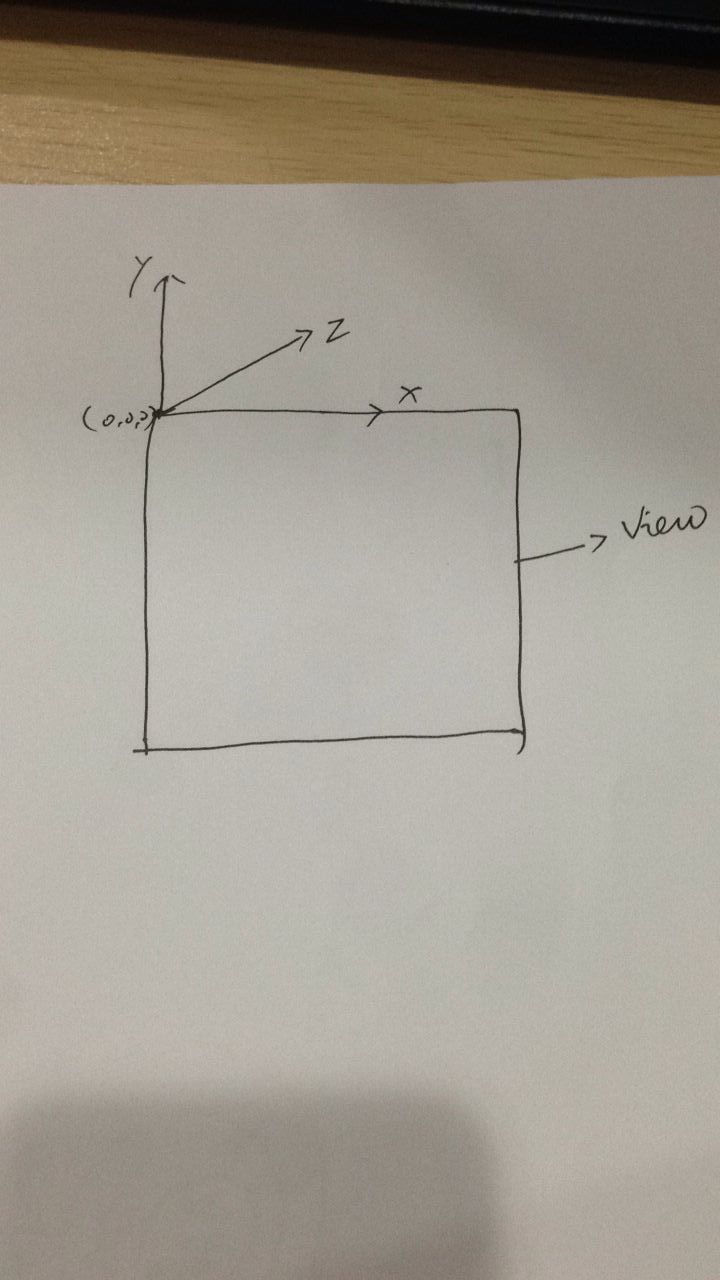 Y
Z
X
(0,0,0)
View